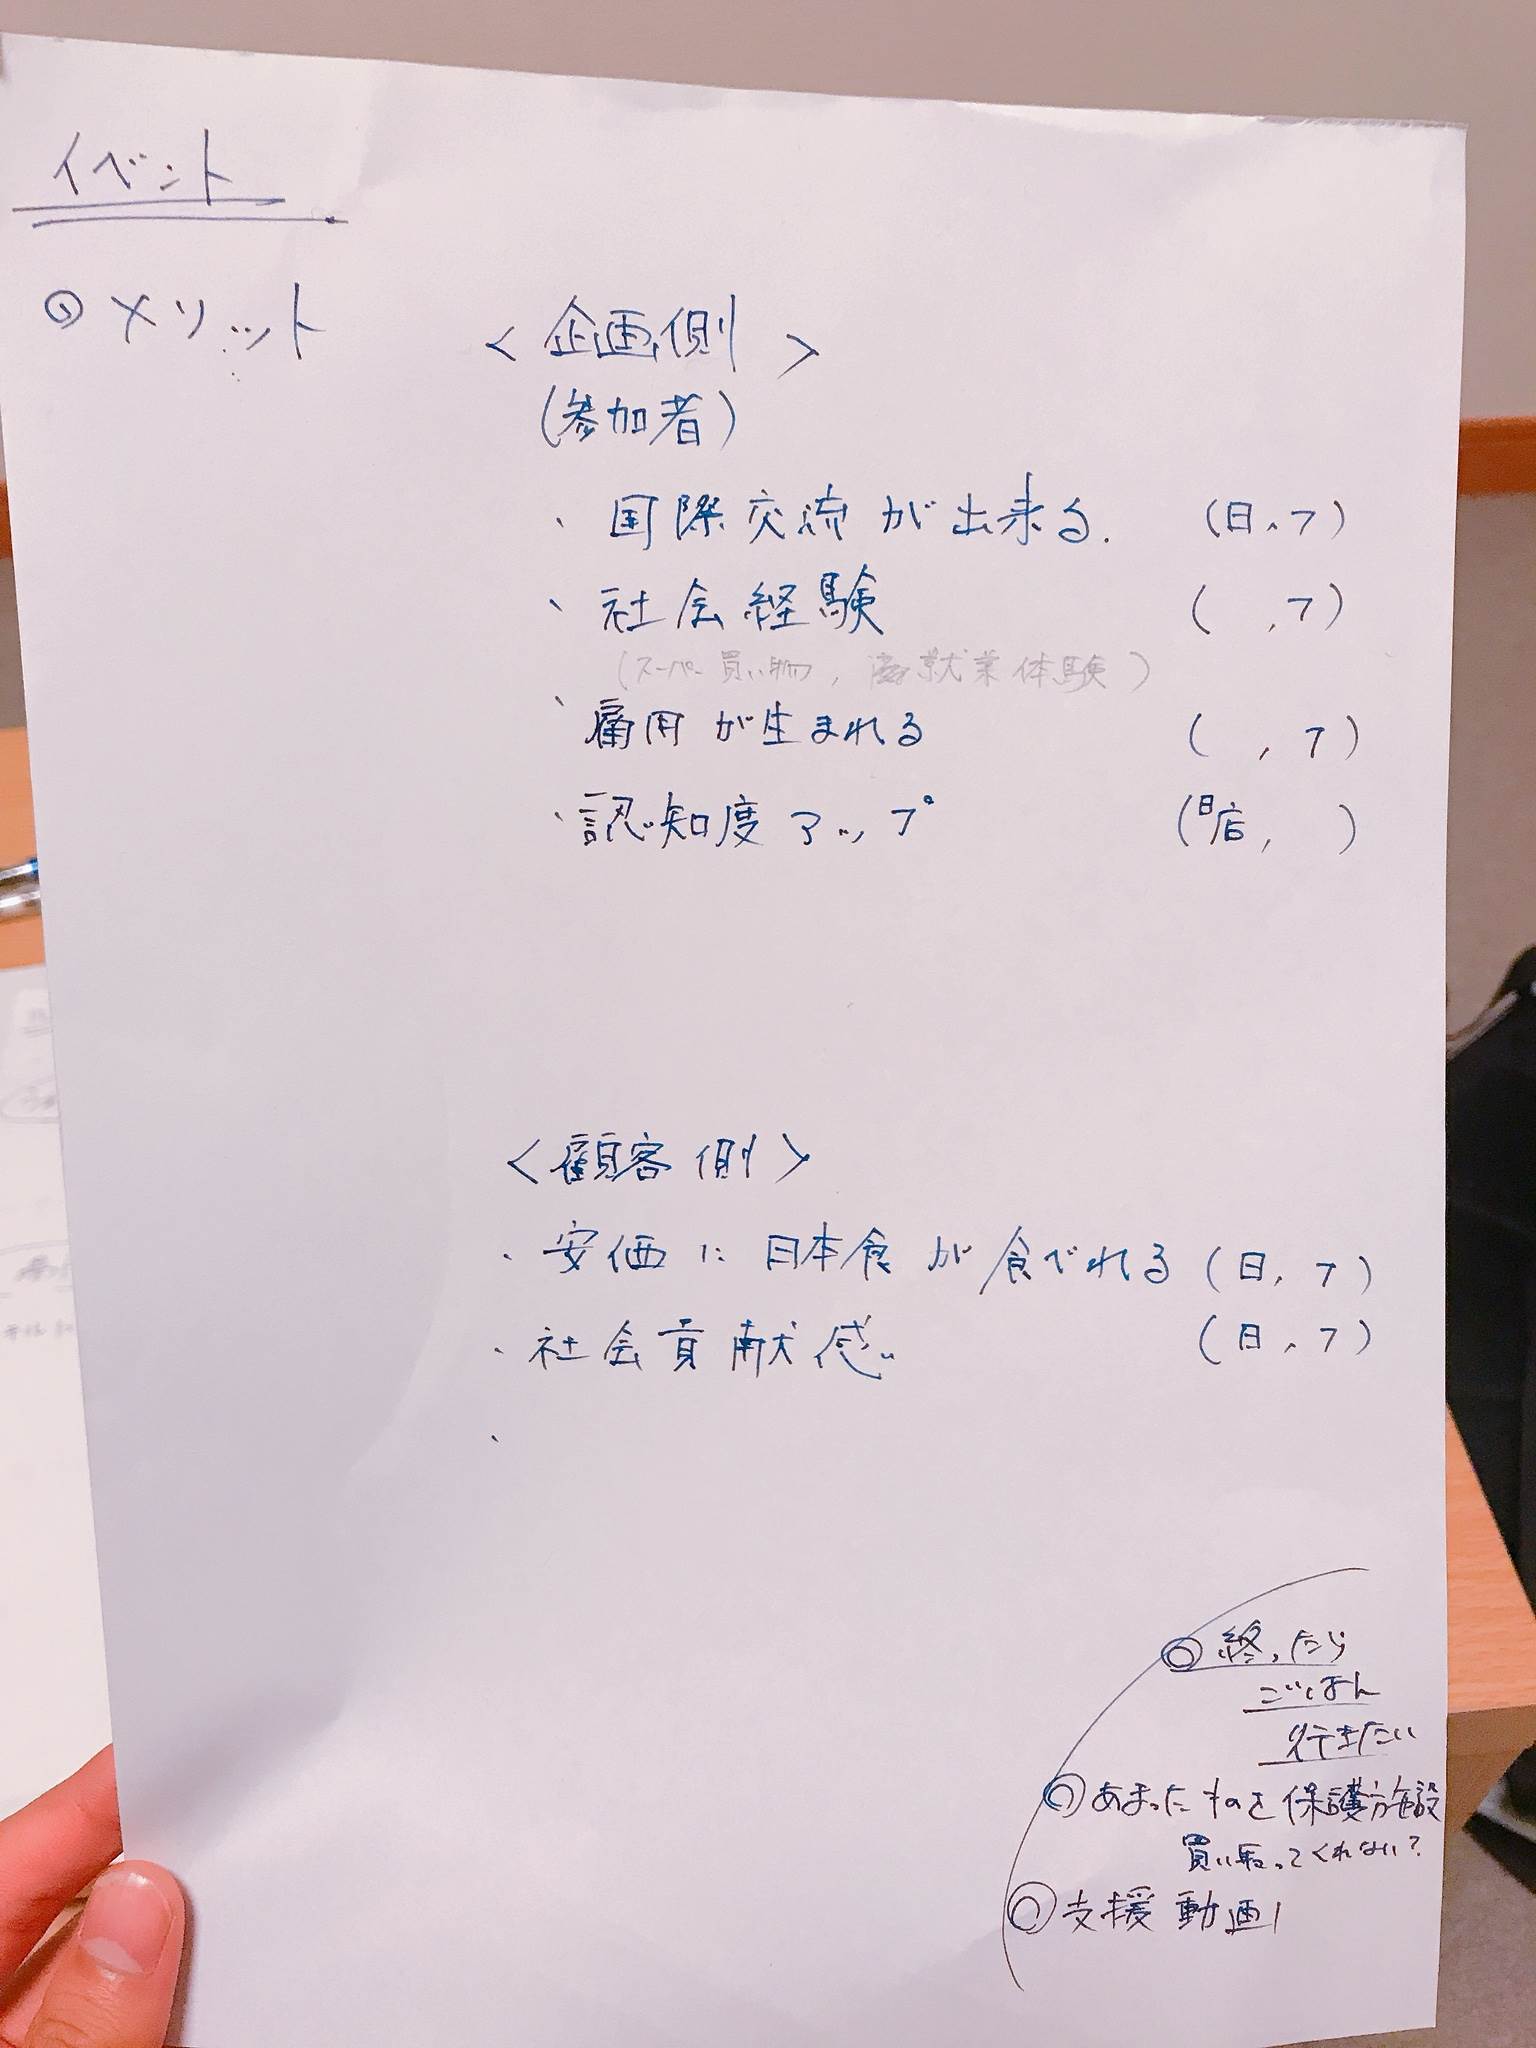 イベント
◎ メリット
<企画側>
(参加者)
・国際交流が出来る. (日、フ)
・社会経験 ( ,フ)
(スーパー買い物, 就業体験)
・雇用が生まれる ( , フ)
・認知度アップ (日店, )
<顧客側>
・安価に日本食が食べれる (日, フ)
・社会貢献感。 (日、フ)
・
◎終ったら
ごはん
行きたい
◎あまったものを保護施設
買い取ってくれない?
◎支援動画